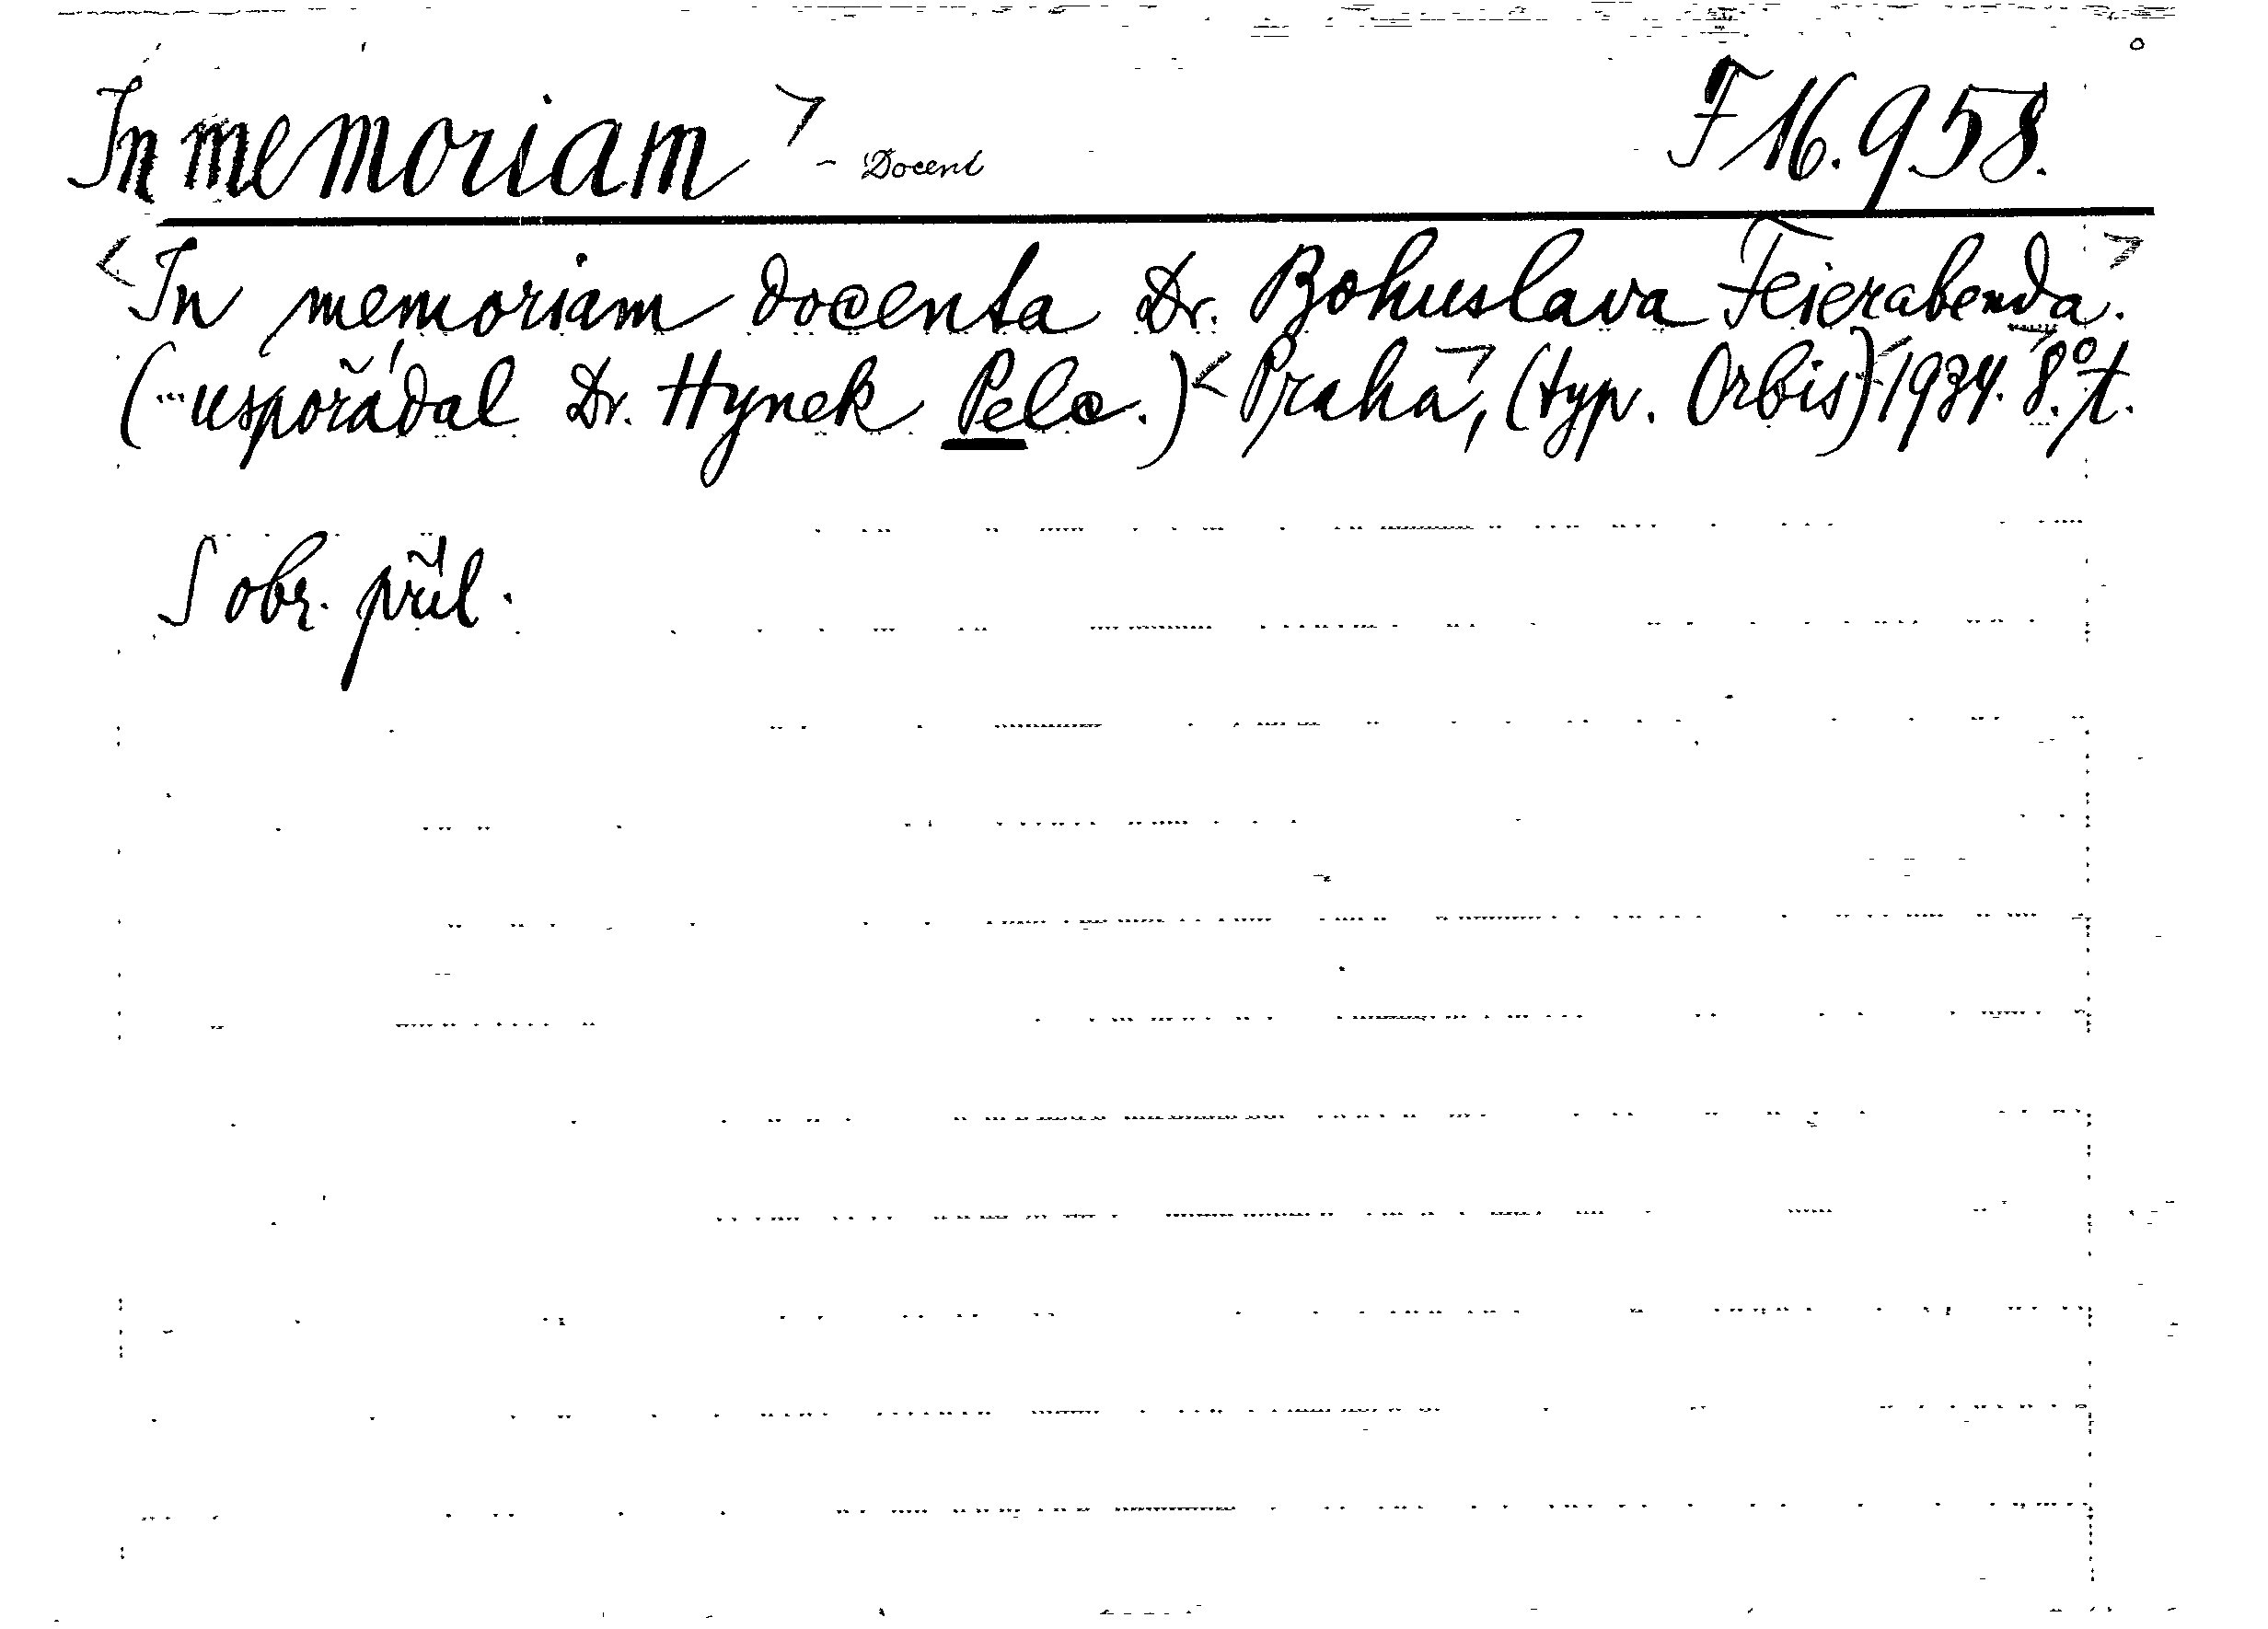 In memoriam - Docent F 16.958.
In memoriam docenta Dr. Bohuslava Feierabenda.
(...uspořádal Dr. Hynek Pelc.) Praha, (typ. Orbis) 1934. 8.° t.
S obr. příl.